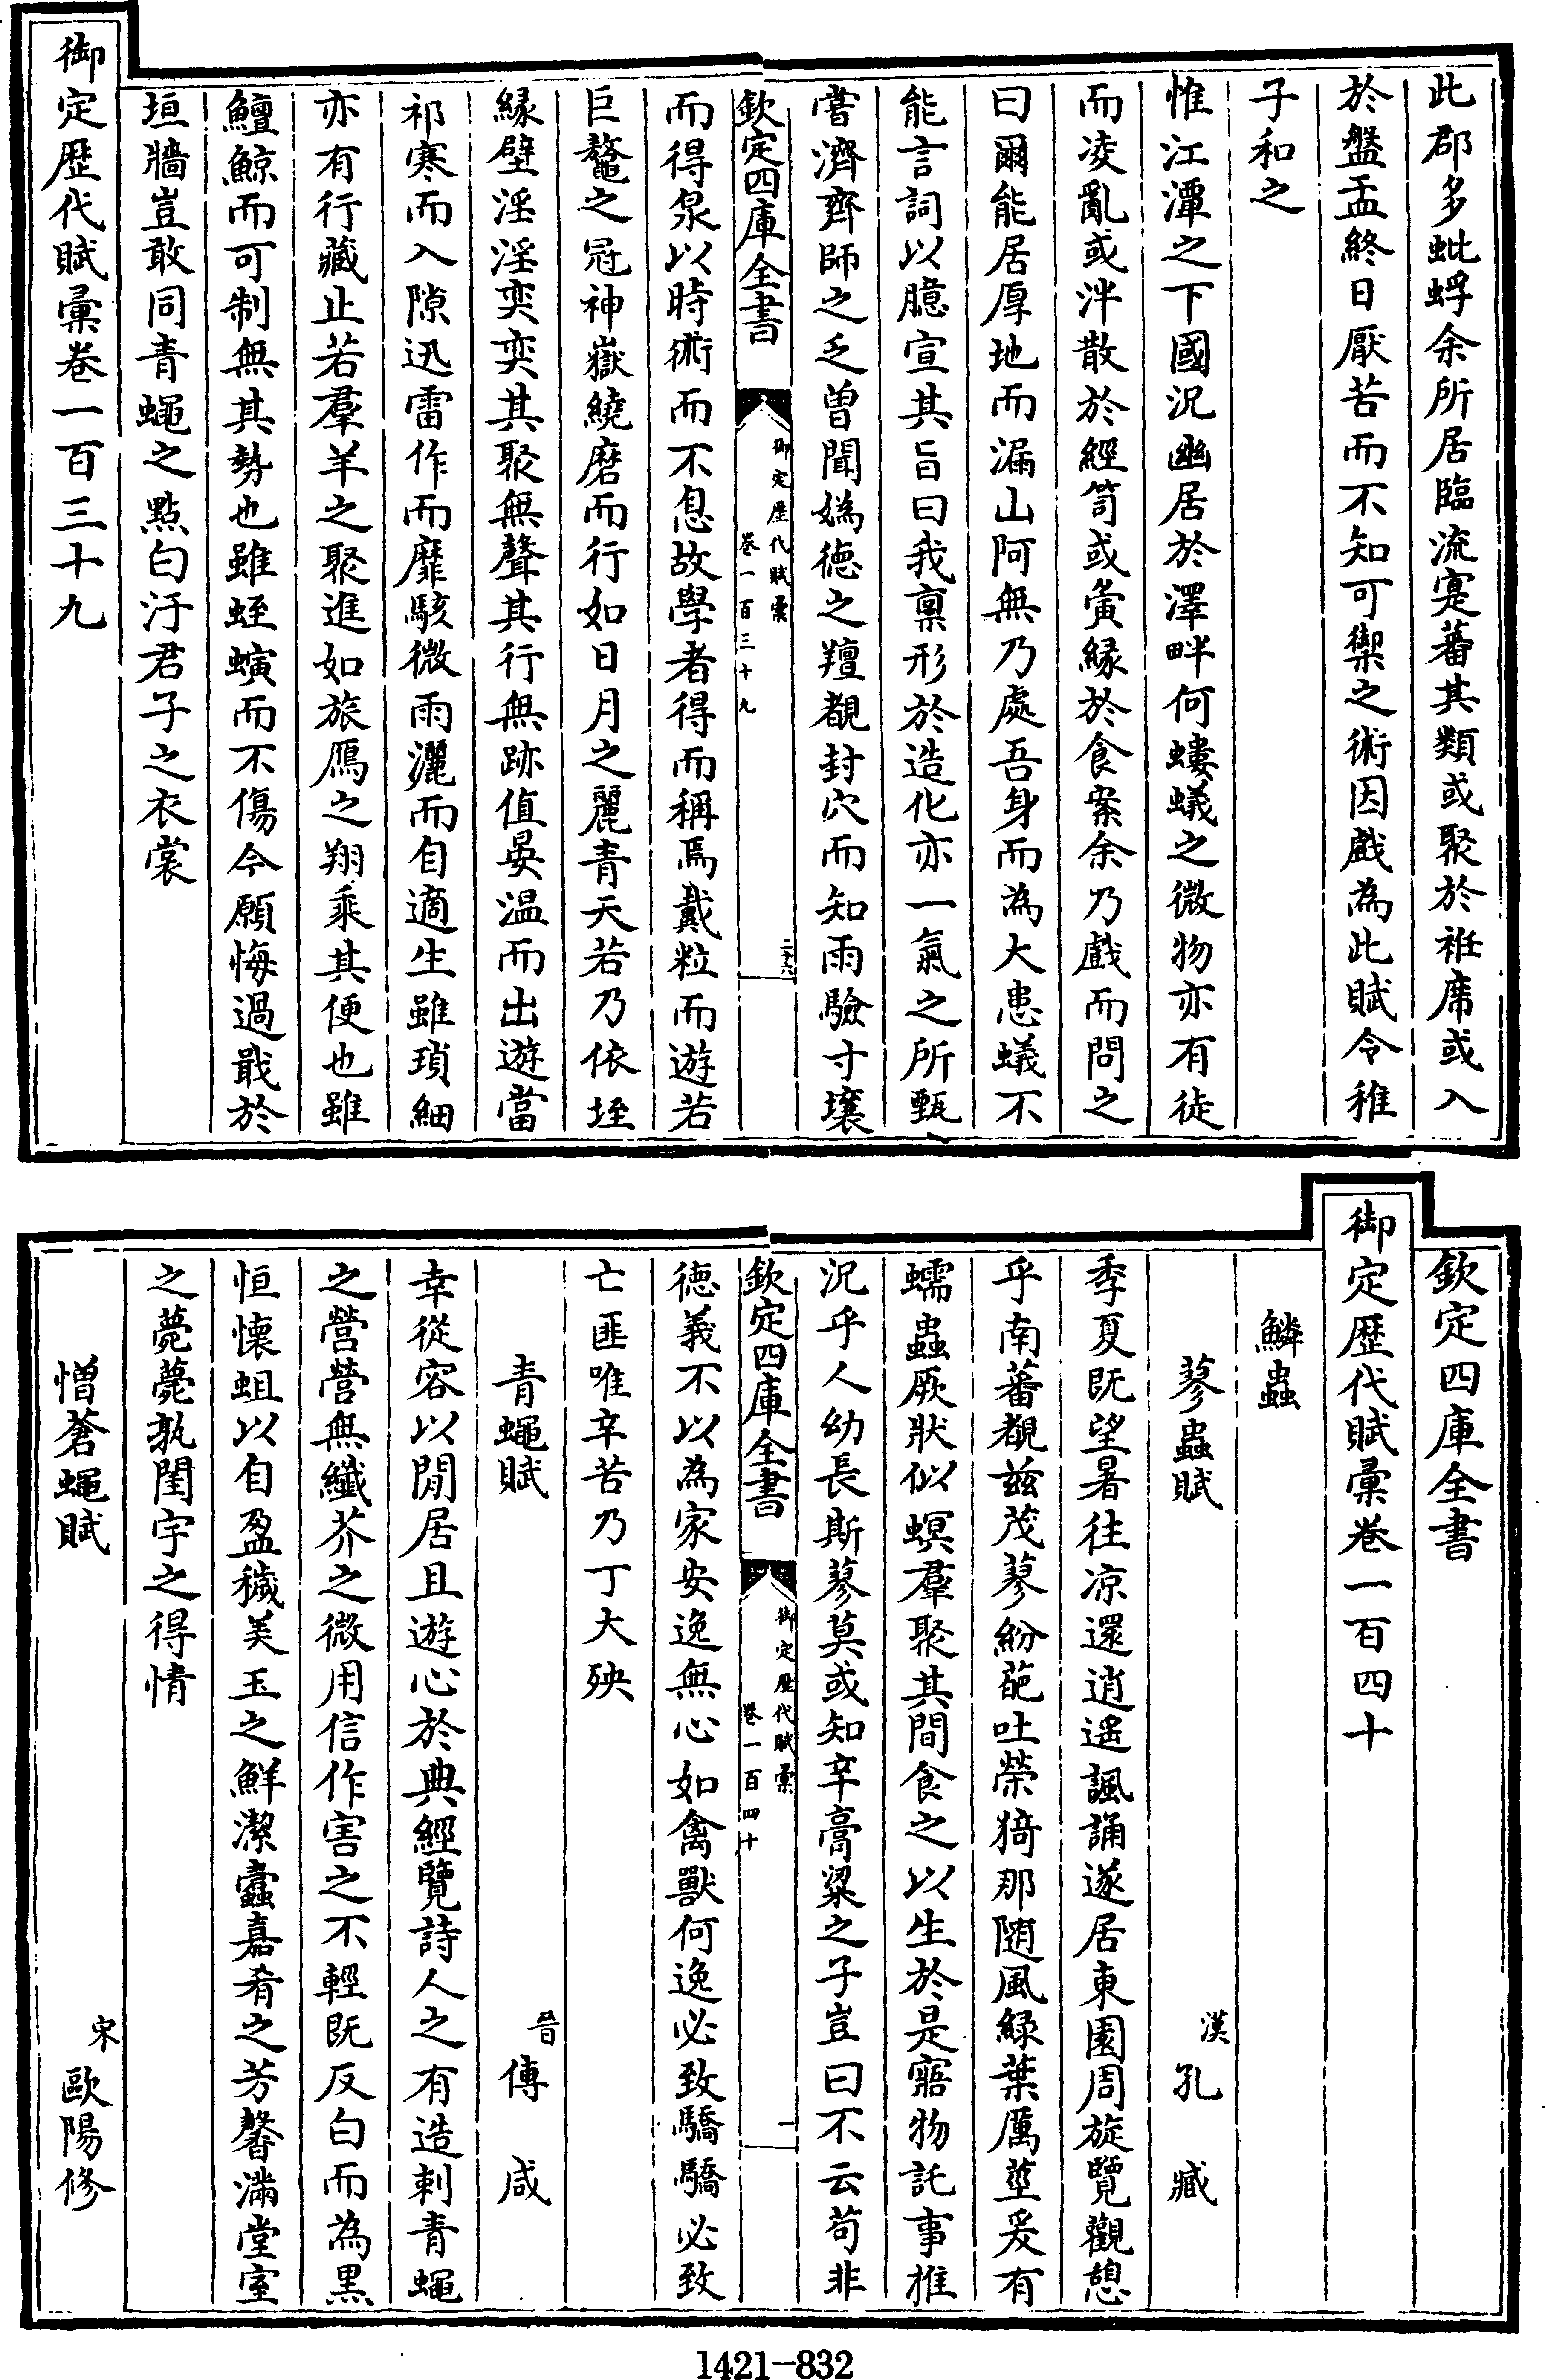 此郡多蚍蜉余所居臨流寔蕃其類或聚於袵席或入
於盤盂終日厭苦而不知可禦之術因戲為此賦令稚
子和之
惟江潭之下國況幽居於澤畔何螻蟻之微物亦有徒
而凌亂或泮散於經笥或夤緣於食案余乃戲而問之
曰爾能居厚地而漏山阿無乃處吾身而為大患蟻不
能言詞以臆宣其旨曰我稟形於造化亦一氣之所甄
嘗濟齊師之乏曾聞媯德之羶覩封穴而知雨驗寸壤
欽定四庫全書
御定歷代賦彙
卷一百三十九
二十六
而得泉以時術而不息故學者得而稱焉戴粒而遊若
巨鼇之冠神嶽繞磨而行如日月之麗青天若乃依垤
緣壁淫淫奕奕其聚無聲其行無跡值晏温而出遊當
祁寒而入隙迅雷作而靡駭微雨灑而自適生雖瑣細
亦有行藏止若羣羊之聚進如旅鴈之翔乘其便也雖
鱣鯨而可制無其勢也雖蛭螾而不傷今願悔過戢於
垣牆豈敢同青蠅之點白汙君子之衣裳
御定歷代賦彙卷一百三十九
欽定四庫全書
御定歷代賦彙卷一百四十
鱗蟲
蓼蟲賦
漢 孔臧
季夏既望暑往凉還逍遙諷誦遂居東園周旋覽觀憩
乎南蕃覩兹茂蓼紛葩吐榮猗那随風緑葉厲莖爰有
蠕蟲厥狀似螟羣聚其間食之以生於是寤物託事推
況乎人幼長斯蓼莫或知辛膏粱之子豈曰不云苟非
欽定四庫全書
御定歷代賦彙
卷一百四十
一
德義不以為家安逸無心如禽獸何逸必致驕驕必致
亡匪唯辛苦乃丁大殃
青蠅賦
晉 傅咸
幸從容以閒居且遊心於典經覽詩人之有造刺青蠅
之營營無纖芥之微用信作害之不輕既反白而為黑
恒懷蛆以自盈穢美玉之鮮潔蠧嘉肴之芳馨滿堂室
之薨薨孰閨宇之得情
憎蒼蠅賦
宋 歐陽修
1421-832